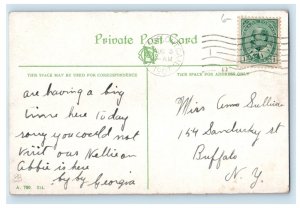 Private Post Card
THIS SPACE MAY BE USED FOR CORRESPONDENCE
THIS SPACE FOR ADDRESS ONLY
are having a big
time here today
sorry you could not
visit our Nellie an
Abbie is here
by by Georgia
Miss Anna Sullivan
154 Sandusky st
Buffalo
N. Y.
A. 700